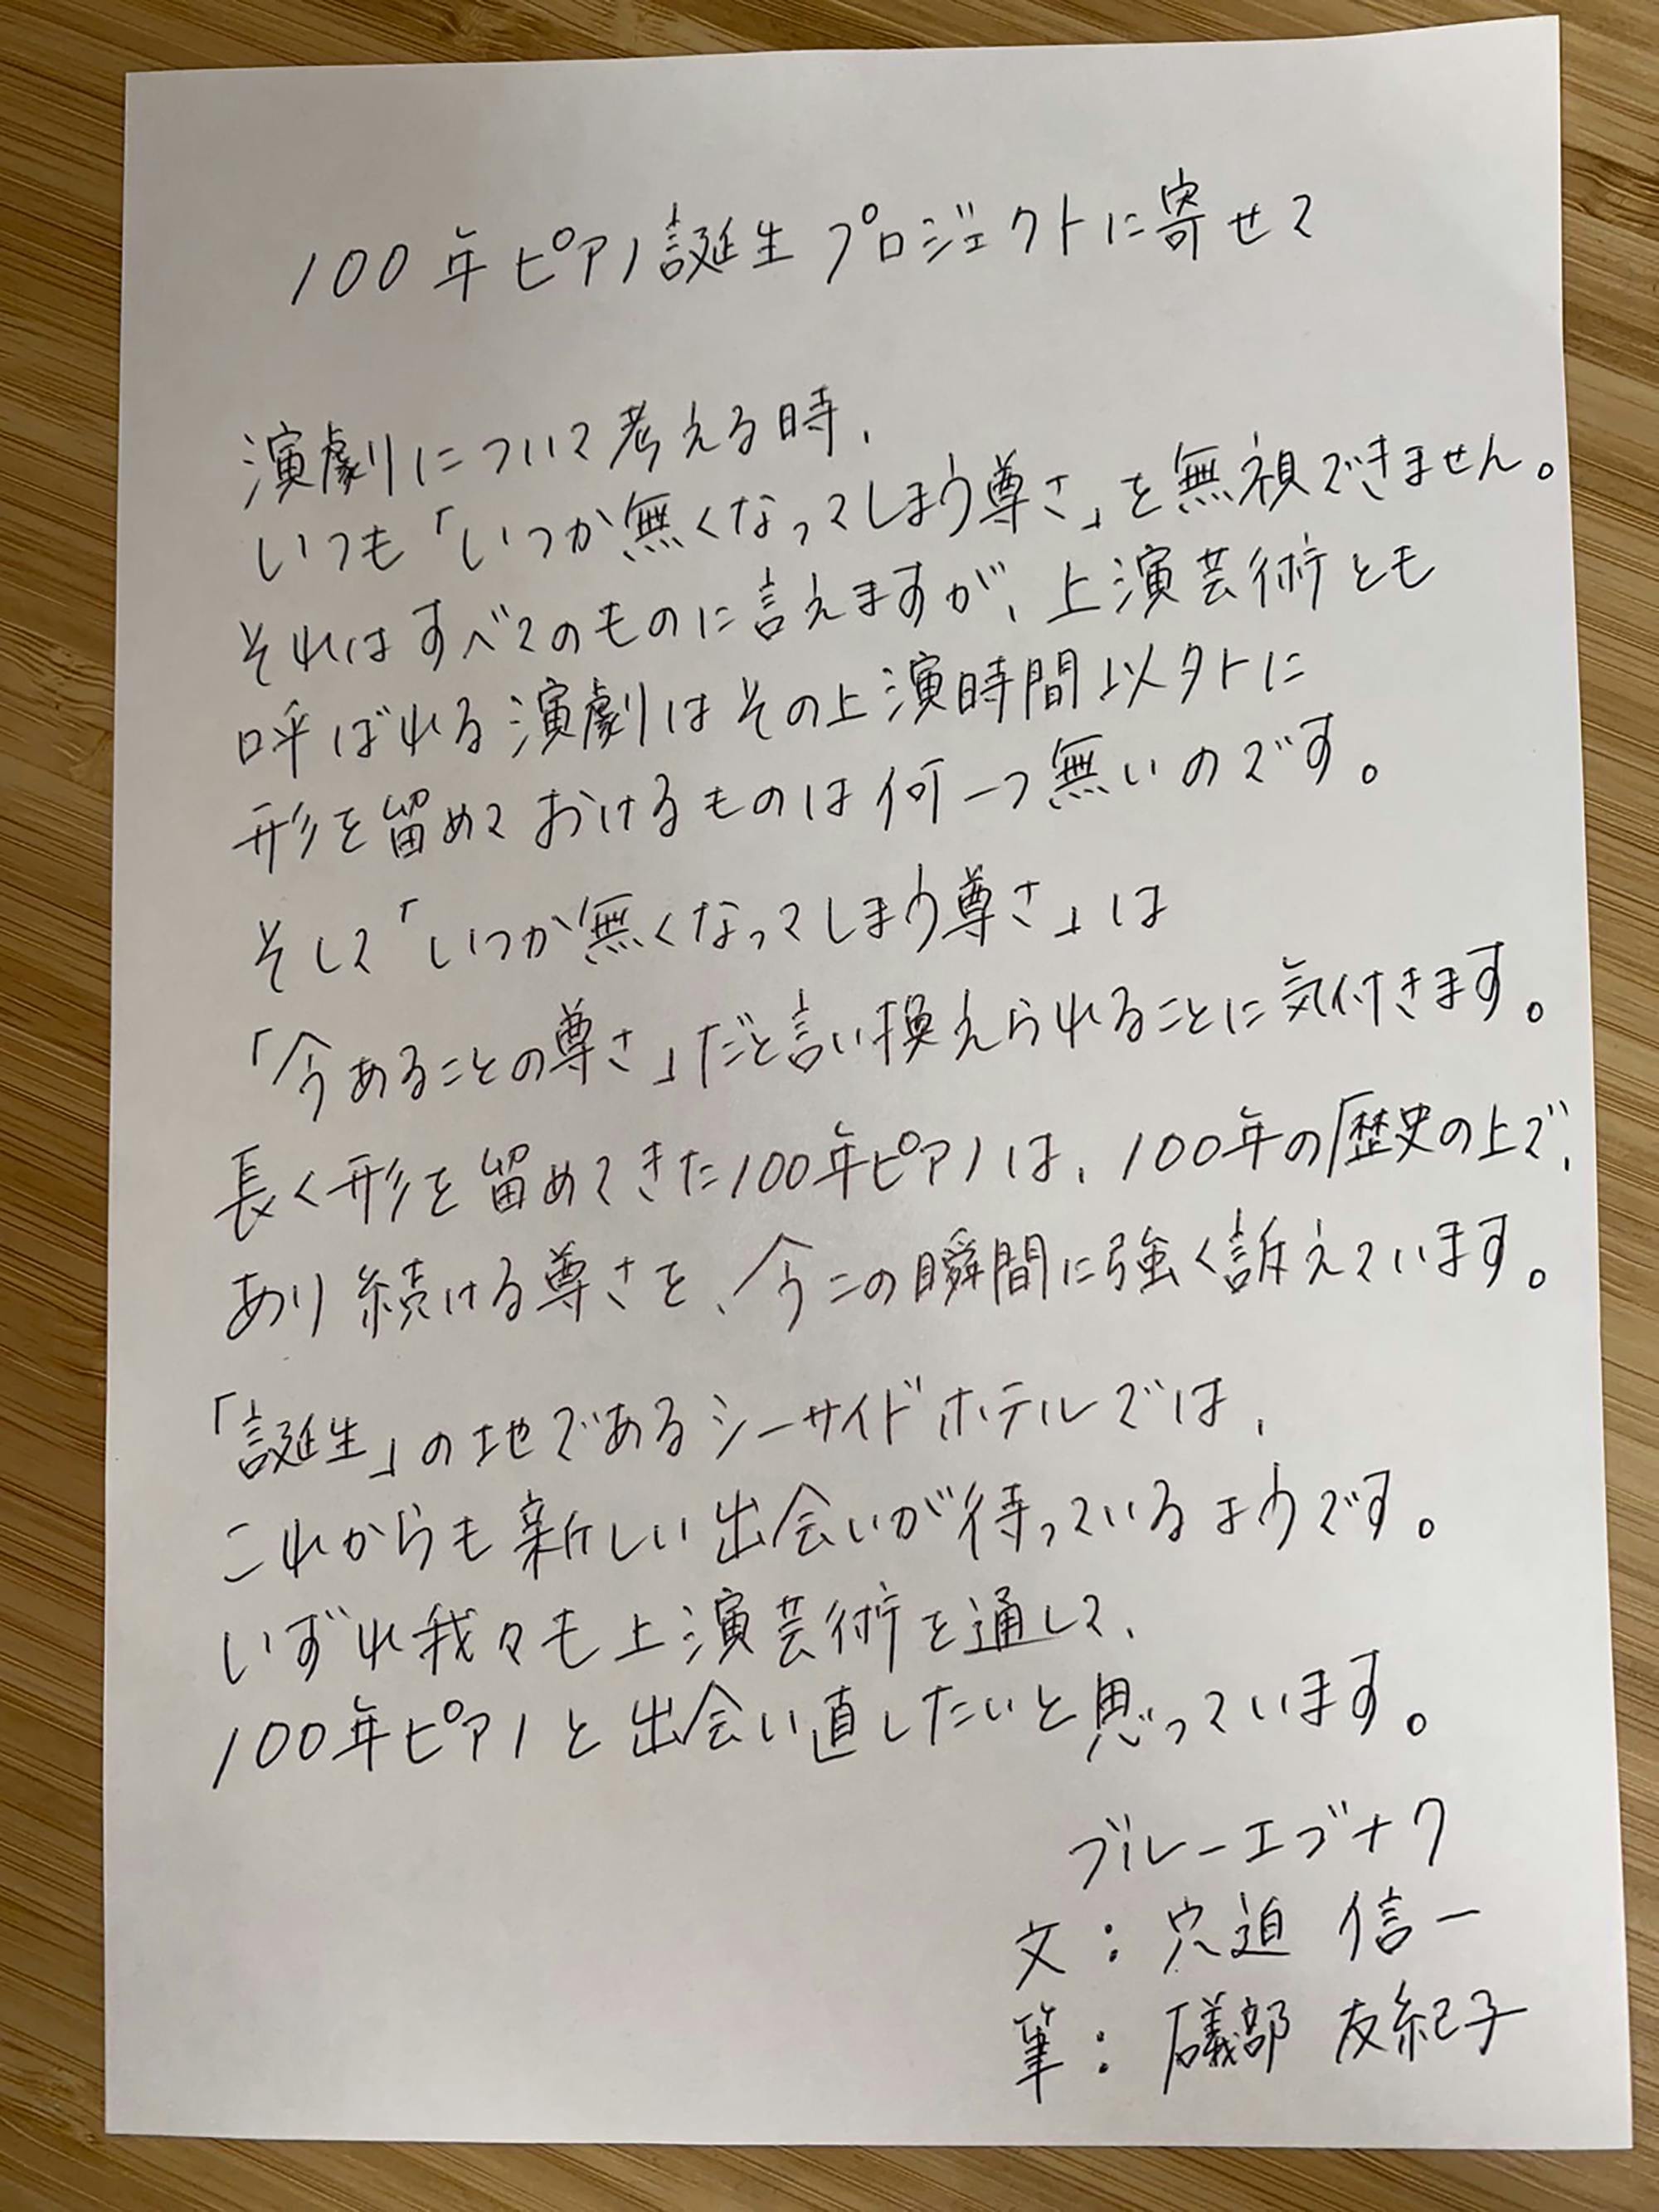 100年ピアノ誕生プロジェクトに寄せて
演劇について考える時、
いつも「いつか無くなってしまう尊さ」を無視できません。
それはすべてのものに言えますが、上演芸術とも
呼ばれる演劇はその上演時間以外に
形を留めておけるものは何一つ無いのです。
そして「いつか無くなってしまう尊さ」は
「今あることの尊さ」だと言い換えられることに気付きます。
長く形を留めてきた100年ピアノは、100年の歴史の上で、
あり続ける尊さを、今この瞬間に強く訴えています。
「誕生」の地であるシーサイドホテルでは、
これからも新しい出会いが待っているようです。
いずれ我々も上演芸術を通して、
100年ピアノと出会い直したいと思っています。
ブルーエゴナク
文：穴迫 信一
筆：礒部 友紀子